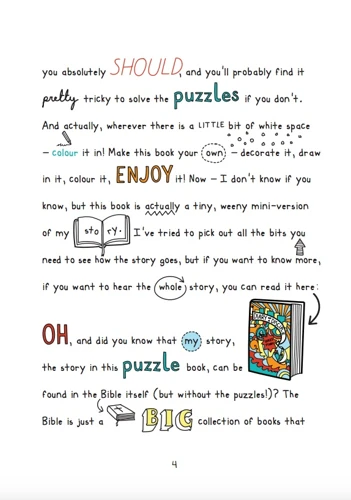 you absolutely SHOULD, and you'll probably find it
pretty tricky to solve the puzzles if you don't.
And actually, wherever there is a LITTLE bit of white space
– colour it in! Make this book your own – decorate it, draw
in it, colour it, ENJOY it! Now – I don't know if you
know, but this book is actually a tiny, weeny mini-version
of my story. I've tried to pick out all the bits you
need to see how the story goes, but if you want to know more,
if you want to hear the whole story, you can read it here:
OH, and did you know that my story,
the story in this puzzle book, can be
found in the Bible itself (but without the puzzles!)? The
Bible is just a BIG collection of books that
4